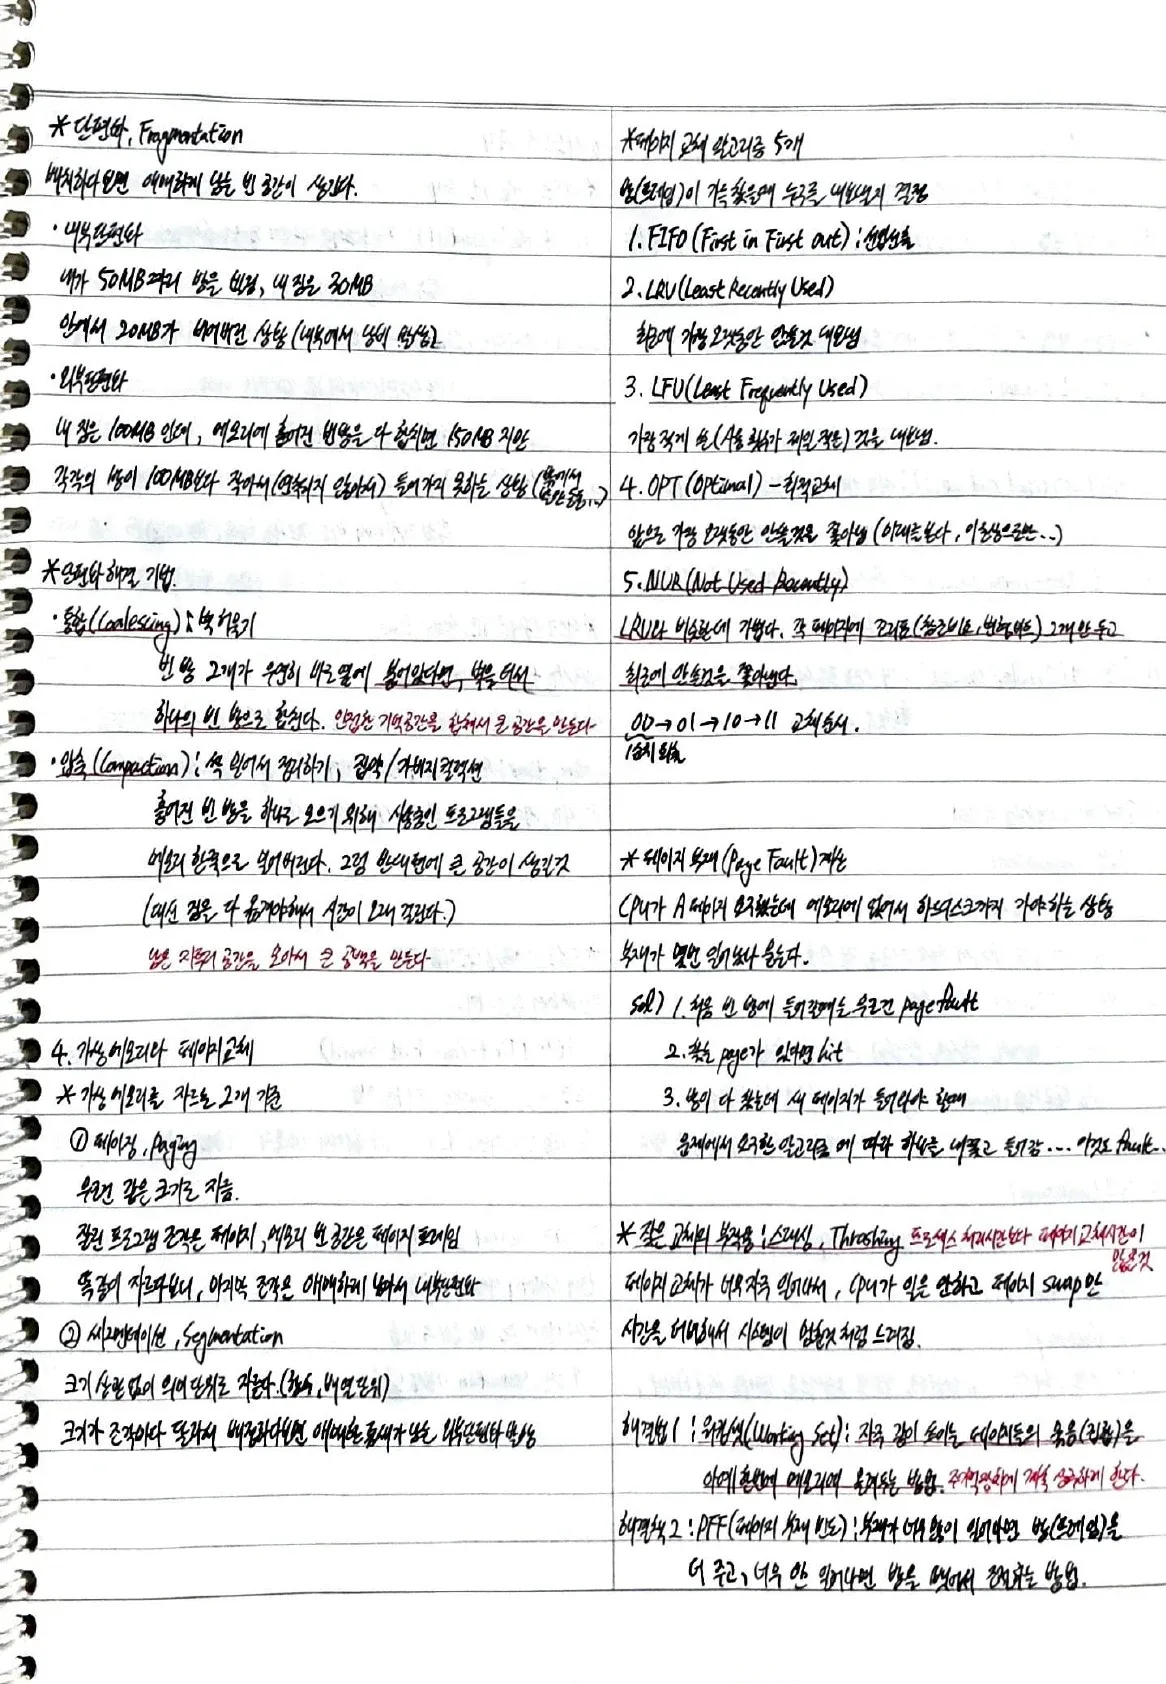 * 단편화, Fragmentation
배치하다보면 애매하게 남는 빈 공간이 생긴다.
· 내부단편화
내가 50MB짜리 방을 빌림, 내 짐은 30MB
안에서 20MB가 비어버린 상황 (내부에서 낭비 발생)
· 외부단편화
내 짐은 100MB 인데, 메모리에 흩어진 빈방을 다 합치면 150MB 지만
각각의 방이 100MB보다 작아서 (연속되지 않아서) 들어가지 못하는 상황 (밖에서
* 단편화 해결 기법.
· 통합(Coalescing) : 벽 허물기
빈 방 2개가 우연히 바로 옆에 붙어있다면, 벽을 터서
하나의 빈 방으로 합친다. 인접한 기억공간을 합쳐서 큰 공간을 만든다
· 압축(Compaction) : 싹 밀어서 정리하기, 집약/가비지 컬렉션
흩어진 빈 방을 하나로 모으기 위해 사용중인 프로그램들을
메모리 한쪽으로 밀어버린다. 그럼 반대편에 큰 공간이 생길것
(대신 짐을 다 옮겨야해서 시간이 오래 걸린다.)
남은 자투리 공간을 모아서 큰 공백을 만든다
4. 가상메모리와 페이지교체
* 가상메모리를 자르는 2개 기준
① 페이징, Paging
무조건 같은 크기로 자름.
잘린 프로그램 조각은 페이지, 메모리 빈 공간은 페이지 프레임
똑같이 자르다보니, 마지막 조각은 애매하게 남아서 내부단편화
② 세그멘테이션, Segmentation
크기 상관 없이 의미 단위로 자른다. (함수, 배열 단위)
크기가 조각마다 달라서 배정하다보면 애매한 틈새가 남는 외부단편화 발생
* 페이지 교체 알고리즘 5개
방(프레임)이 가득 찾을때 누구를 내보낼지 결정
1. FIFO (First in First out) : 선입선출
2. LRU (Least Recently Used)
최근에 가장 오랫동안 안쓴것 내보냄
3. LFU (Least Frequently Used)
가장 적게 쓴 (사용 횟수가 제일 적은) 것을 내보냄.
4. OPT (Optimal) - 최적교체
앞으로 가장 오랫동안 안쓸것을 쫓아냄 (미래를 본다, 이론상으로만...)
5. NUR (Not Used Recently)
LRU와 비슷한데 가볍다. 각 페이지에 꼬리표(참조비트, 변형비트) 2개만 두고
최근에 안쓴것을 쫓아낸다.
00 → 01 → 10 → 11 교체순서.
1순위 퇴출
* 페이지 부재 (Page Fault) 계산
CPU가 A 페이지 요구했는데 메모리에 없어서 하드디스크까지 가야하는 상황
부재가 몇번 일어났나 묻는다.
Sol) 1. 처음 빈 방에 들어갈때는 무조건 page fault
2. 찾는 page가 있다면 hit
3. 방이 다 찼는데 새 페이지가 들어와야 할때
문제에서 요구한 알고리즘에 따라 하나를 내쫓고 들어감... 이것도 fault...
* 잦은 교체의 부작용 : 스래싱, Thrashing 프로세스 처리시간보다 페이지 교체시간이
많은것
페이지교체가 너무 자주 일어나서, CPU가 일은 안하고 페이지 swap만
시간을 허비해서 시스템이 멈춘것 처럼 느려짐.
해결법 1 : 워킹셋(Working Set) : 자주 같이 쓰이는 페이지들의 묶음(집합)을
아예 한번에 메모리에 올려두는 방법. 주기억장치에 계속 상주하게 한다.
해결책 2 : PFF (페이지 부재 빈도) : 부재가 너무 많이 일어나면 방(프레임)을
더 주고, 너무 안 일어나면 방을 뺏어서 조절하는 방법.